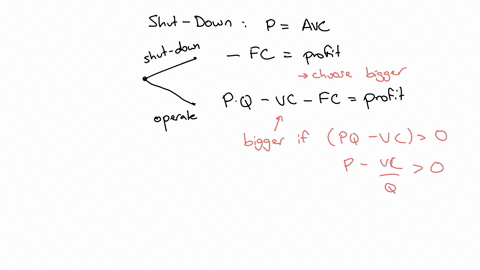 Shut-Down : P = AVC
shut-down
- FC = profit
→ choose bigger
P·Q - VC - FC = profit
operate
bigger if (PQ - VC) > 0
P - VC/Q > 0